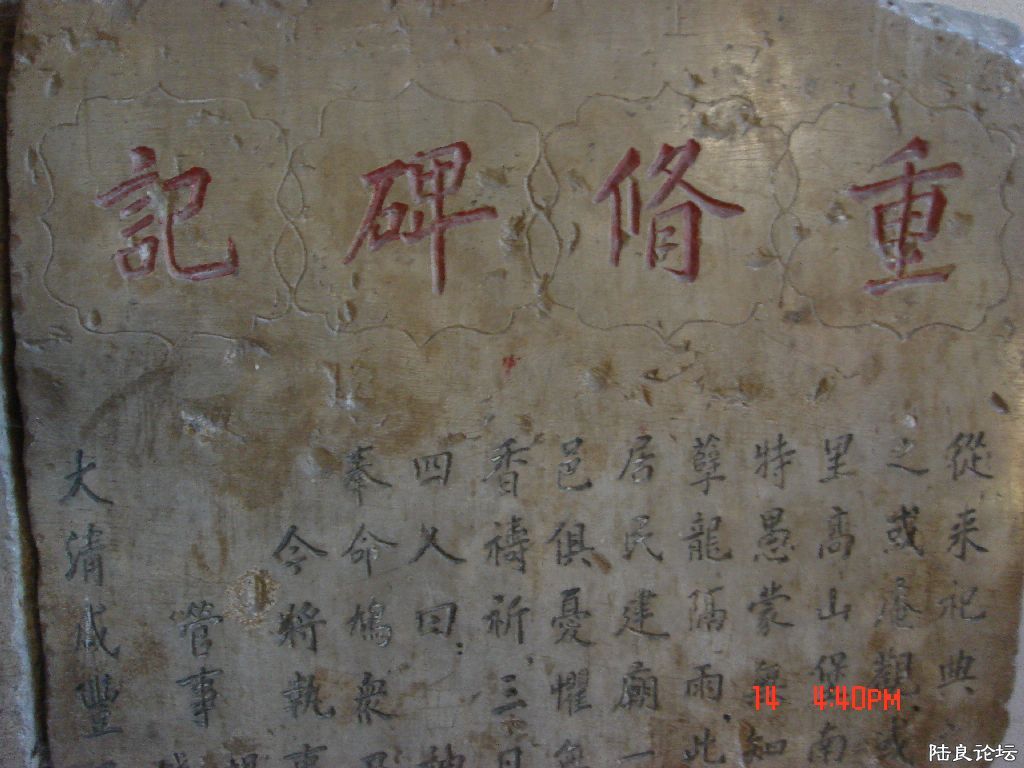 重脩碑記
從来祀典
之或庵觀或
里高山保南
特愚蒙無知
孽龍隔雨此
居民建廟一
邑俱憂懼無
香禱祈三日
四久曰
奉命鳩衆
今將執事
管事
大清咸豐
14 4:40PM
陆良论坛